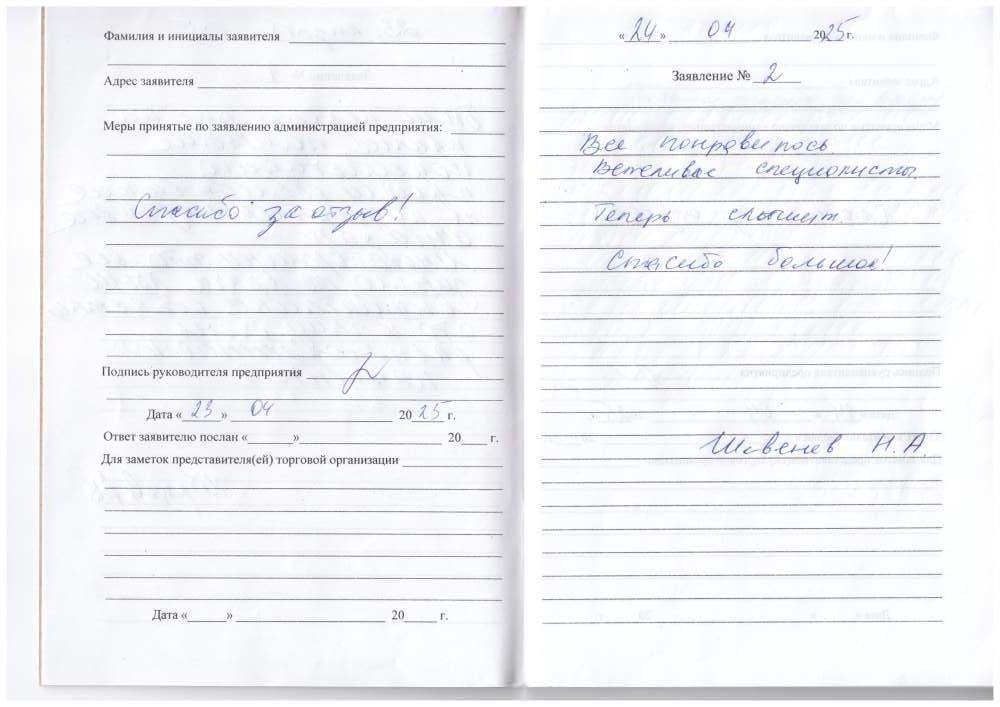 Фамилия и инициалы заявителя
Адрес заявителя
Меры принятые по заявлению администрацией предприятия:
Спасибо за отзыв!
Подпись руководителя предприятия
Дата « 23 » 04 2025 г.
Ответ заявителю послан « » 20 г.
Для заметок представителя(ей) торговой организации
Дата « » 20 г.
« 24 » 04 2025г.
Заявление № 2
Все понравилось
специалисты.
Теперь слышит.
Спасибо большое!
Н.А.